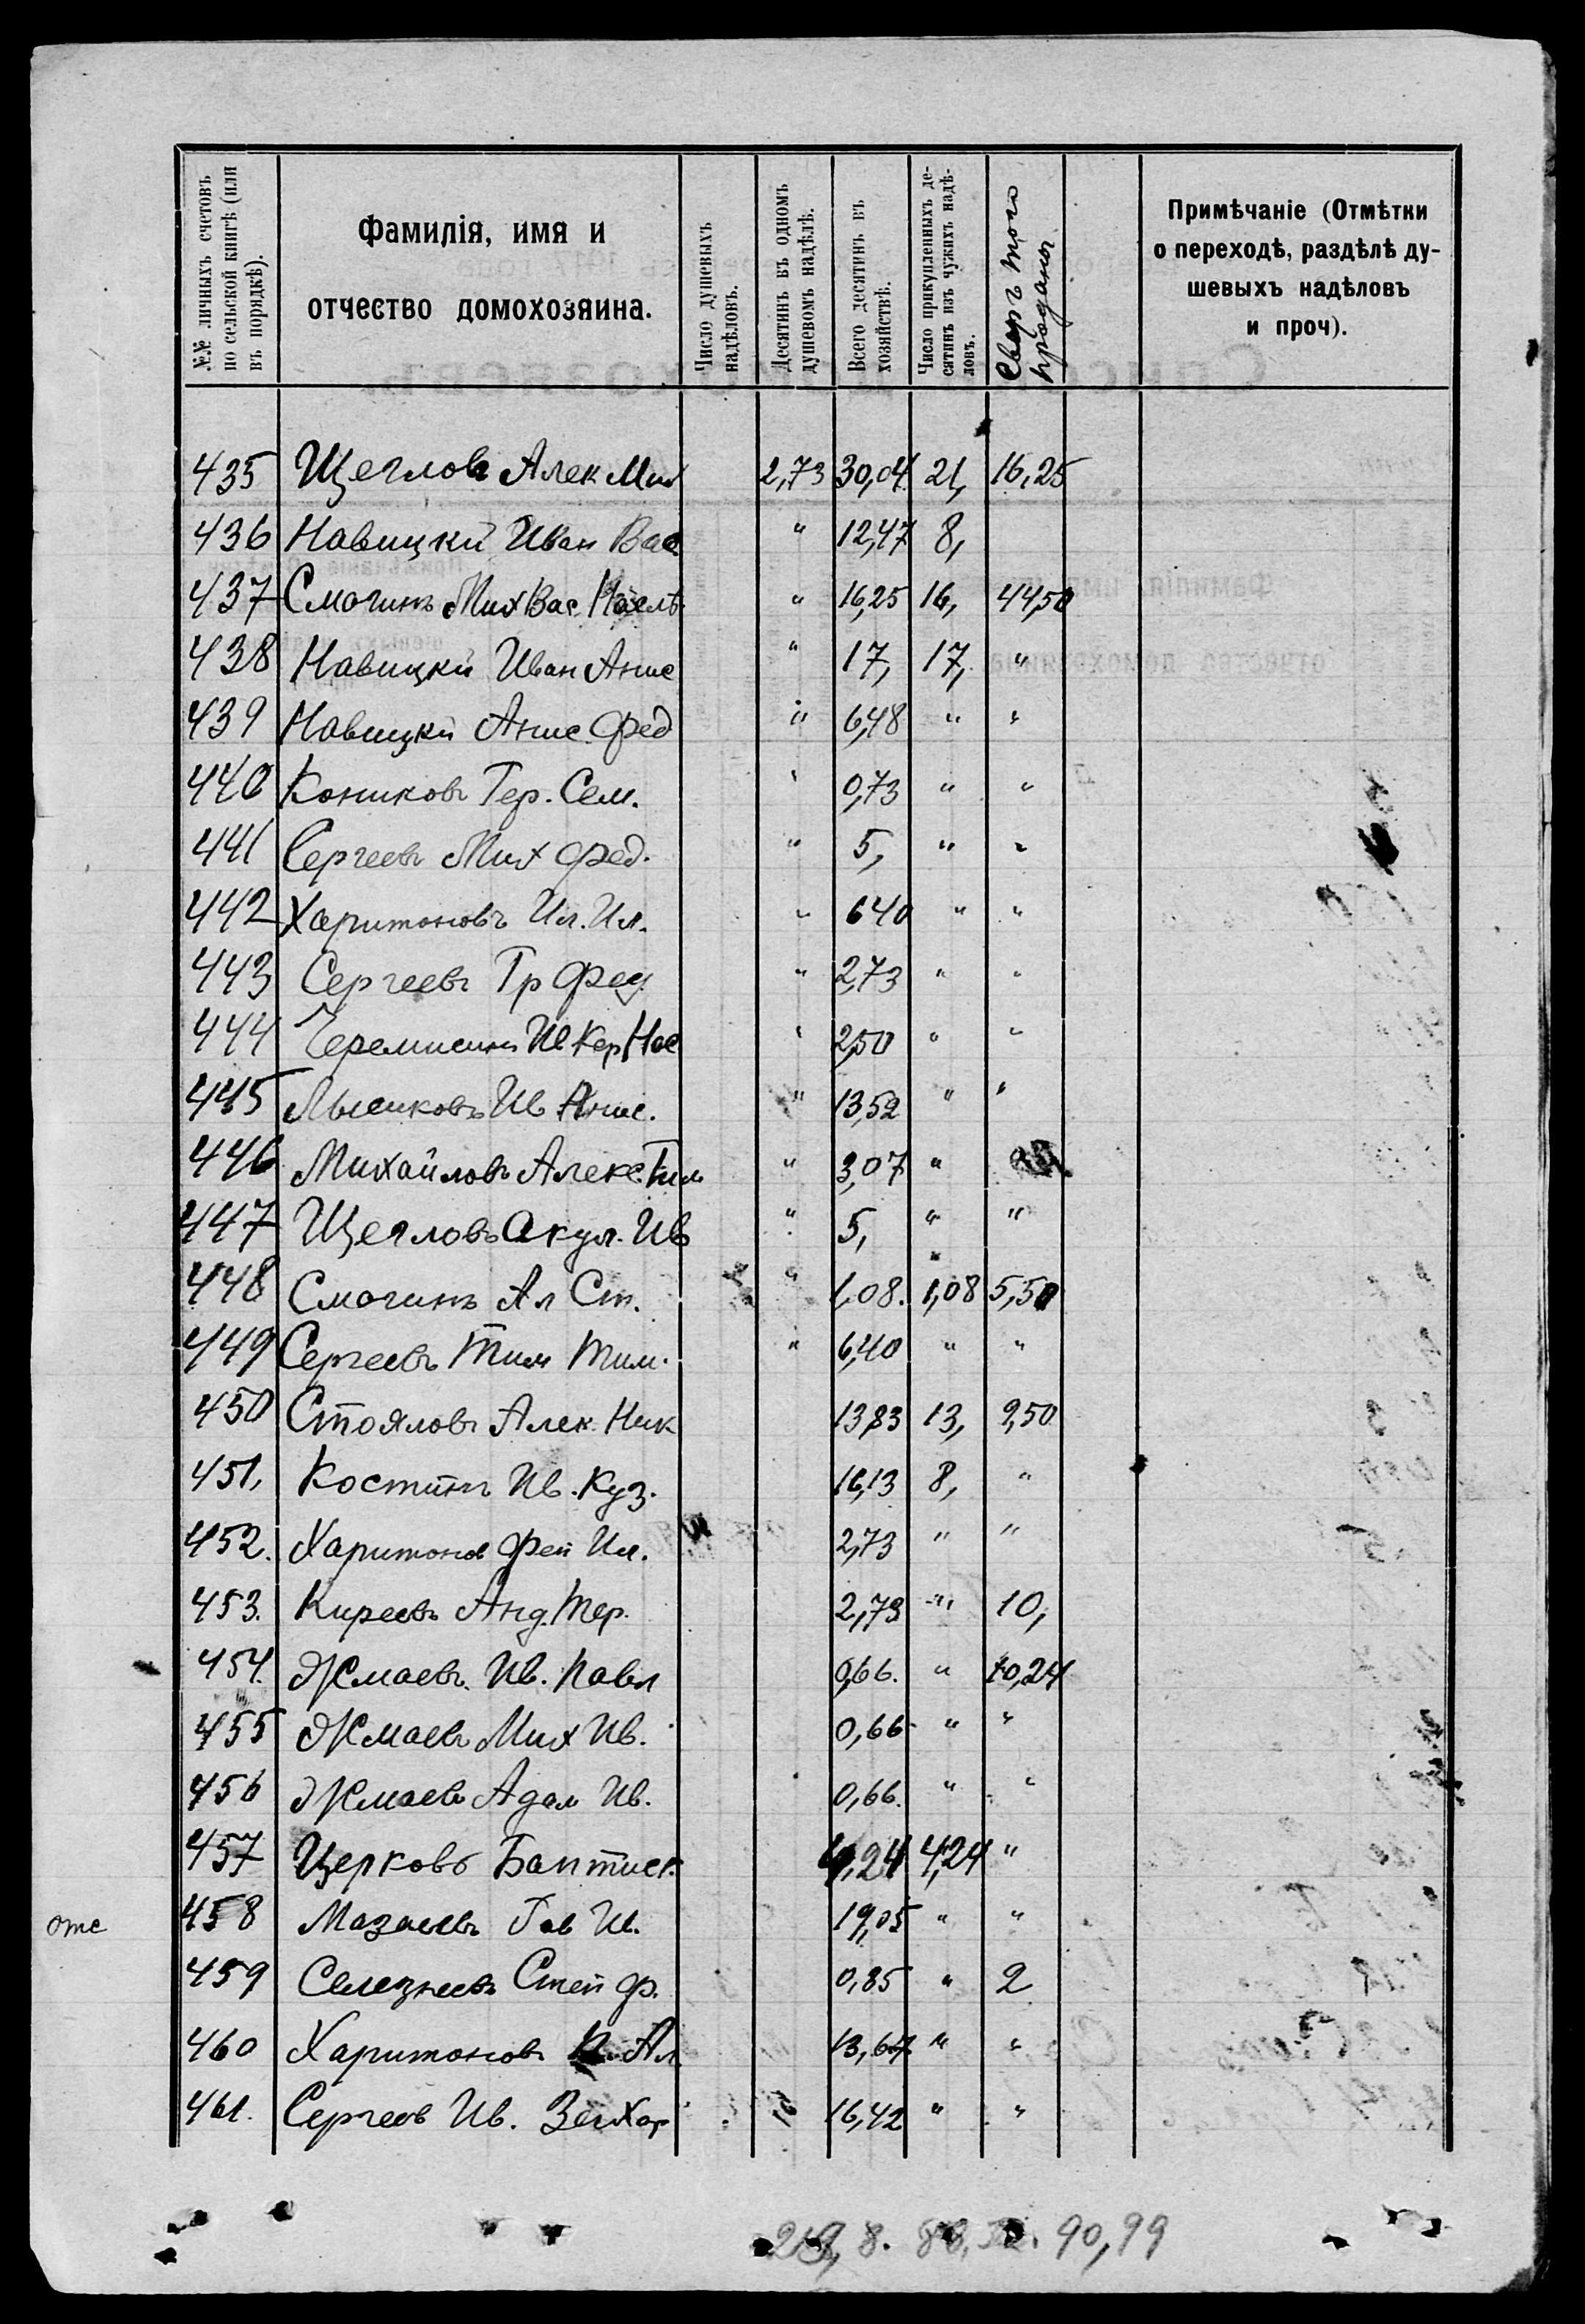 №№ личныхъ счетовъ по сельской книгѣ (или въ порядкѣ).
Фамилія, имя и отчество домохозяина.
Число душевыхъ надѣловъ.
Десятинъ въ одномъ душевомъ надѣлѣ.
Всего десятинъ въ хозяйствѣ.
Число прикупленныхъ десятинъ изъ чужихъ надѣловъ.
Сверхъ того проданы.
Примѣчаніе (Отмѣтки
о переходѣ, раздѣлѣ ду-
шевыхъ надѣловъ
и проч).
435 Щегловъ Алек Мих 2,73 30,04 21, 16,25
436 Навицкій Иван Вас " 12,47 8,
437 Смагинъ Мих Вас " 16,25 16, 44,50
438 Навицкій Иван Анис " 17, 17, "
439 Навицкій Анис. Фед " 6,48 " "
440 Кониковъ Гер. Сем. " 0,73 " "
441 Сергеевъ Мих Фед. " 5, " "
442 Харитоновъ Ил. Ил. " 640 " "
443 Сергеевъ Гр Фед " 2,73 " "
444 Черемисинъ Ив Кер Нас " 2,50 " "
445 Лысиковъ Ив Анис. " 13,52 " "
446 Михайловъ Алекс. Тим " 3,07 "
447 Щегловъ Акул. Ив " 5, " "
448 Смагинъ Ал Ст. " 1,08. 1,08 5,50
449 Сергеевъ Тим Тим. " 6,40 " "
450 Стояловъ Алек. Ник 13,83 13, 9,50
451, Костинъ Ив. Куз. 16,13 8, "
452. Харитонов Фей Ил. 2,73 " "
453. Киреевъ Анд. Тер. 2,73 " 10,
454. Жмаевъ. Ив. Павл 0,66. " 10,24
455 Жмаевъ Мих Ив. 0,66 " "
456 Жмаевъ Адам Ив. 0,66. " "
457 Церковь Баптист. 4,24 4,24 "
отс 458 Мазаевъ Гав Ив. 19,05 " "
459 Селезневъ Степ Ф. 0,85 " 2
460 Харитоновъ Ал 13,67 " "
461. Сергеев Ив. Захар 16,42 " "
90,99